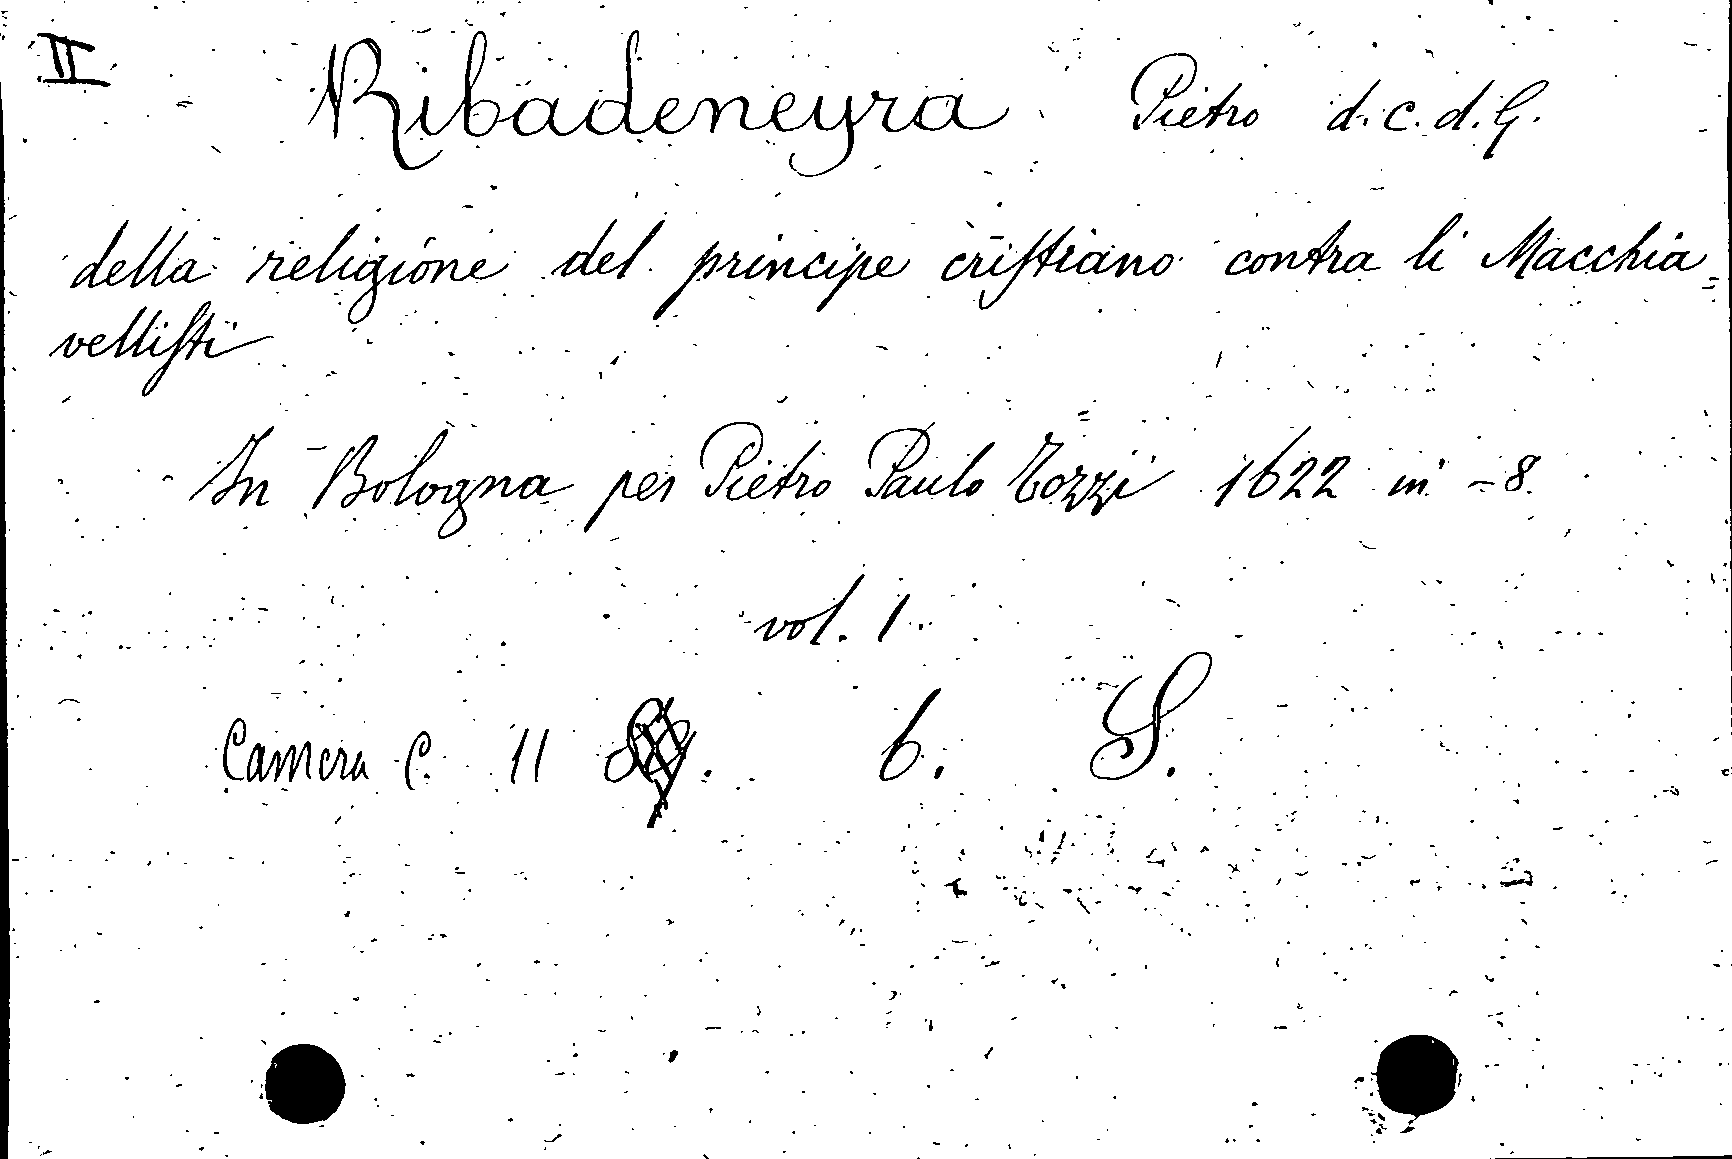 II
Ribadeneyra Pietro d. c. d. G.
della religione del principe criſtiano contra li Macchia=
velliſti
In Bologna per Pietro Paulo Tozzi 1622 in -8.
vol. 1.
Camera C. 11 6. S.